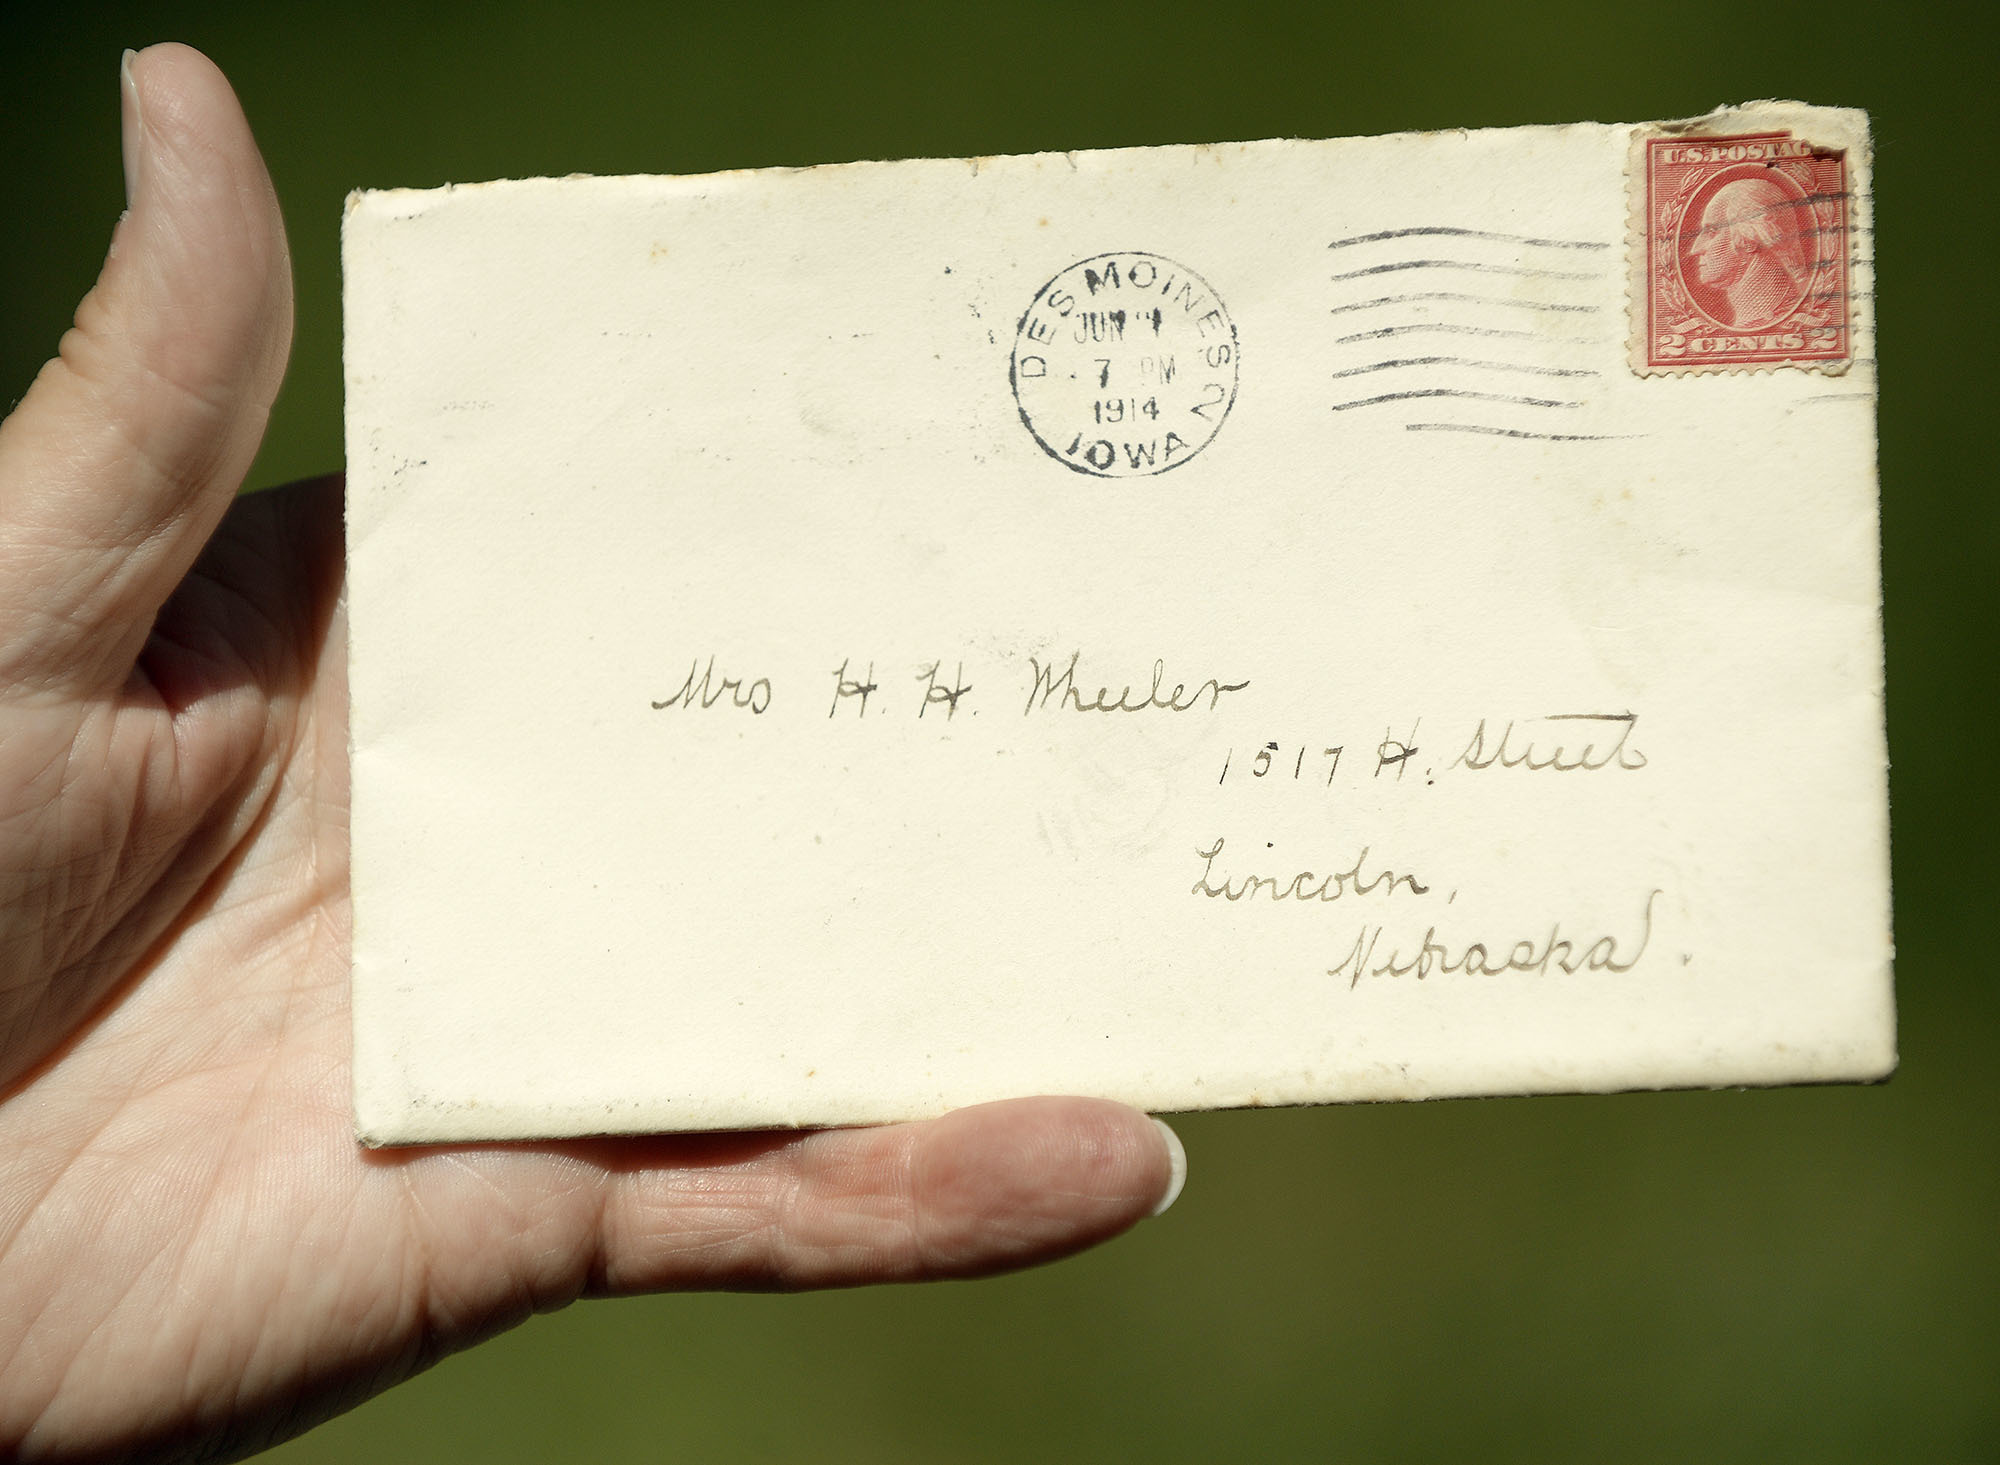 U.S. POSTAG
2 CENTS 2
DES MOINES
JUN
7 PM
1914
IOWA
2
Mrs H. H. Wheeler
1517 H. Street
Lincoln,
Nebraska.